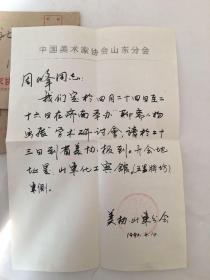 中国美术家协会山东分会
周峰同志:
我们定於四月二十四日至二
十六日在济南举办"聊斋人物
画展"学术研讨会,请於二十
三日到省美协报到。开会地
址是:山东化工宾馆(玉器牌坊)
东侧。
美协山东分会
4.10